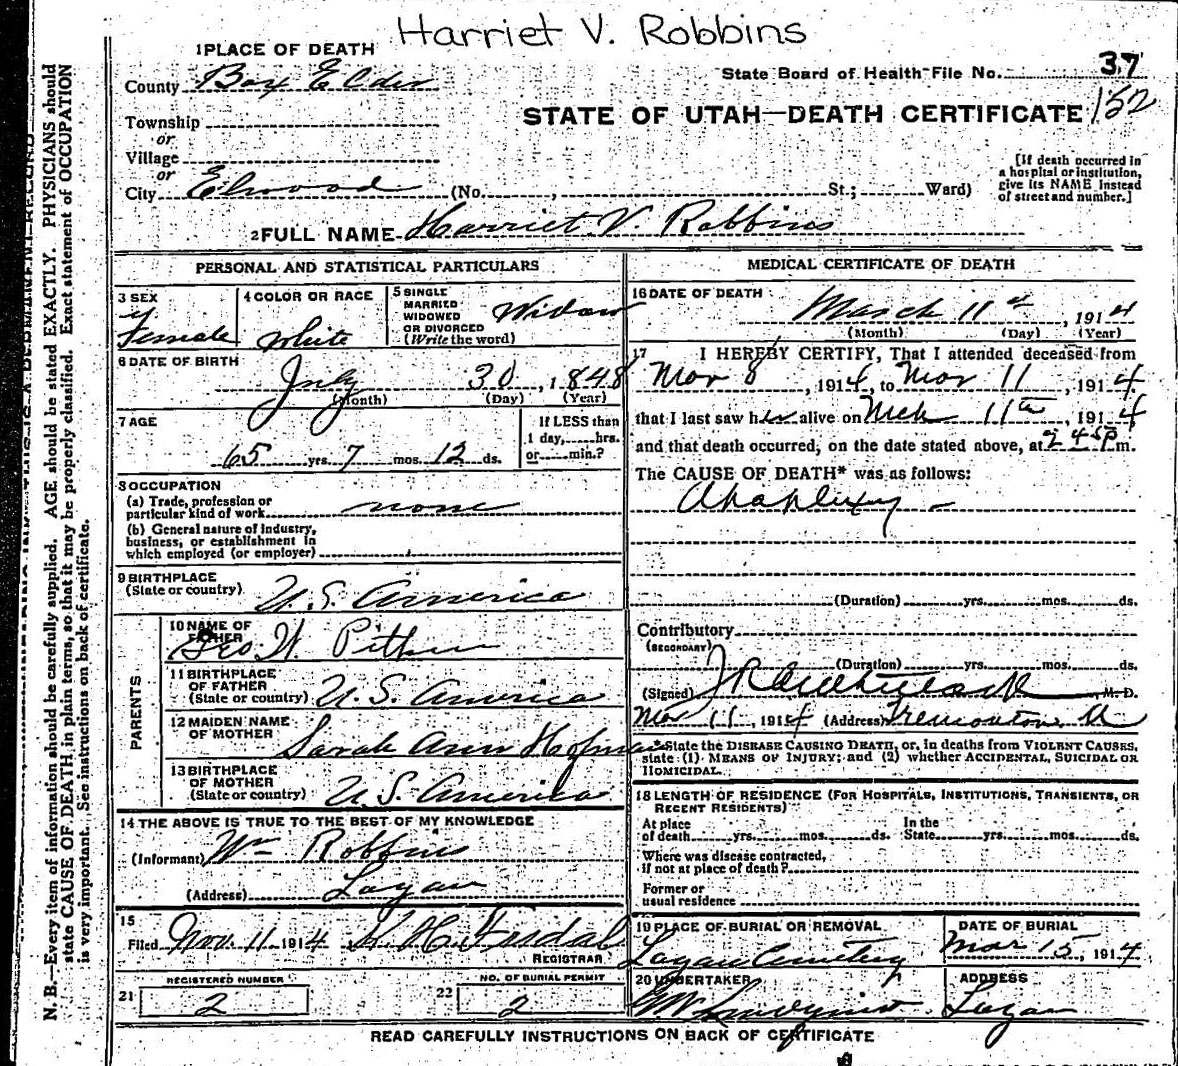 Harriet V. Robbins
1 PLACE OF DEATH
County Box Elder
State Board of Health File No. 37
STATE OF UTAH—DEATH CERTIFICATE 152
Township
or
Village
or
City Elwood (No. , St.; Ward)
[If death occurred in
a hospital or institution,
give its NAME instead
of street and number.]
2 FULL NAME Harriet V. Robbins
PERSONAL AND STATISTICAL PARTICULARS
3 SEX
Female
4 COLOR OR RACE
White
5 SINGLE
MARRIED
WIDOWED
OR DIVORCED
(Write the word)
Widow
6 DATE OF BIRTH
July 30, 1848
(Month) (Day) (Year)
7 AGE
65 yrs. 7 mos. 12 ds.
If LESS than
1 day, hrs.
or min.?
8 OCCUPATION
(a) Trade, profession or
particular kind of work none
(b) General nature of industry,
business, or establishment in
which employed (or employer)
9 BIRTHPLACE
(State or country) U.S. America
PARENTS
10 NAME OF
FATHER
Geo W.
11 BIRTHPLACE
OF FATHER
(State or country) U.S. America
12 MAIDEN NAME
OF MOTHER
Sarah Ann
13 BIRTHPLACE
OF MOTHER
(State or country) U.S. America
14 THE ABOVE IS TRUE TO THE BEST OF MY KNOWLEDGE
(Informant) Wm Robbins
(Address) Logan
15
Filed 11 1914
REGISTRAR
REGISTERED NUMBER
21 2
NO. OF BURIAL PERMIT
22 2
MEDICAL CERTIFICATE OF DEATH
16 DATE OF DEATH
March 11th, 1914
(Month) (Day) (Year)
17 I HEREBY CERTIFY, That I attended deceased from
Mar 8, 1914, to Mar 11, 1914
that I last saw her alive on Mch 11th, 1914
and that death occurred, on the date stated above, at 2 45 P m.
The CAUSE OF DEATH* was as follows:
(Duration) yrs. mos. ds.
Contributory
(SECONDARY)
(Duration) yrs. mos. ds.
(Signed) M. D.
Mar 11, 1914 (Address) Tremonton U
*State the DISEASE CAUSING DEATH, or, in deaths from VIOLENT CAUSES,
state (1) MEANS OF INJURY; and (2) whether ACCIDENTAL, SUICIDAL OR
HOMICIDAL.
18 LENGTH OF RESIDENCE (FOR HOSPITALS, INSTITUTIONS, TRANSIENTS, OR
RECENT RESIDENTS)
At place
of death yrs. mos. ds.
In the
State yrs. mos. ds.
Where was disease contracted,
if not at place of death?
Former or
usual residence
19 PLACE OF BURIAL OR REMOVAL
Logan Cemetery
DATE OF BURIAL
Mar 15, 1914
20 UNDERTAKER
ADDRESS
Logan
READ CAREFULLY INSTRUCTIONS ON BACK OF CERTIFICATE
N. B.—Every item of information should be carefully supplied. AGE should be stated EXACTLY. PHYSICIANS should
state CAUSE OF DEATH in plain terms, so that it may be properly classified. Exact statement of OCCUPATION
is very important. See instructions on back of certificate.